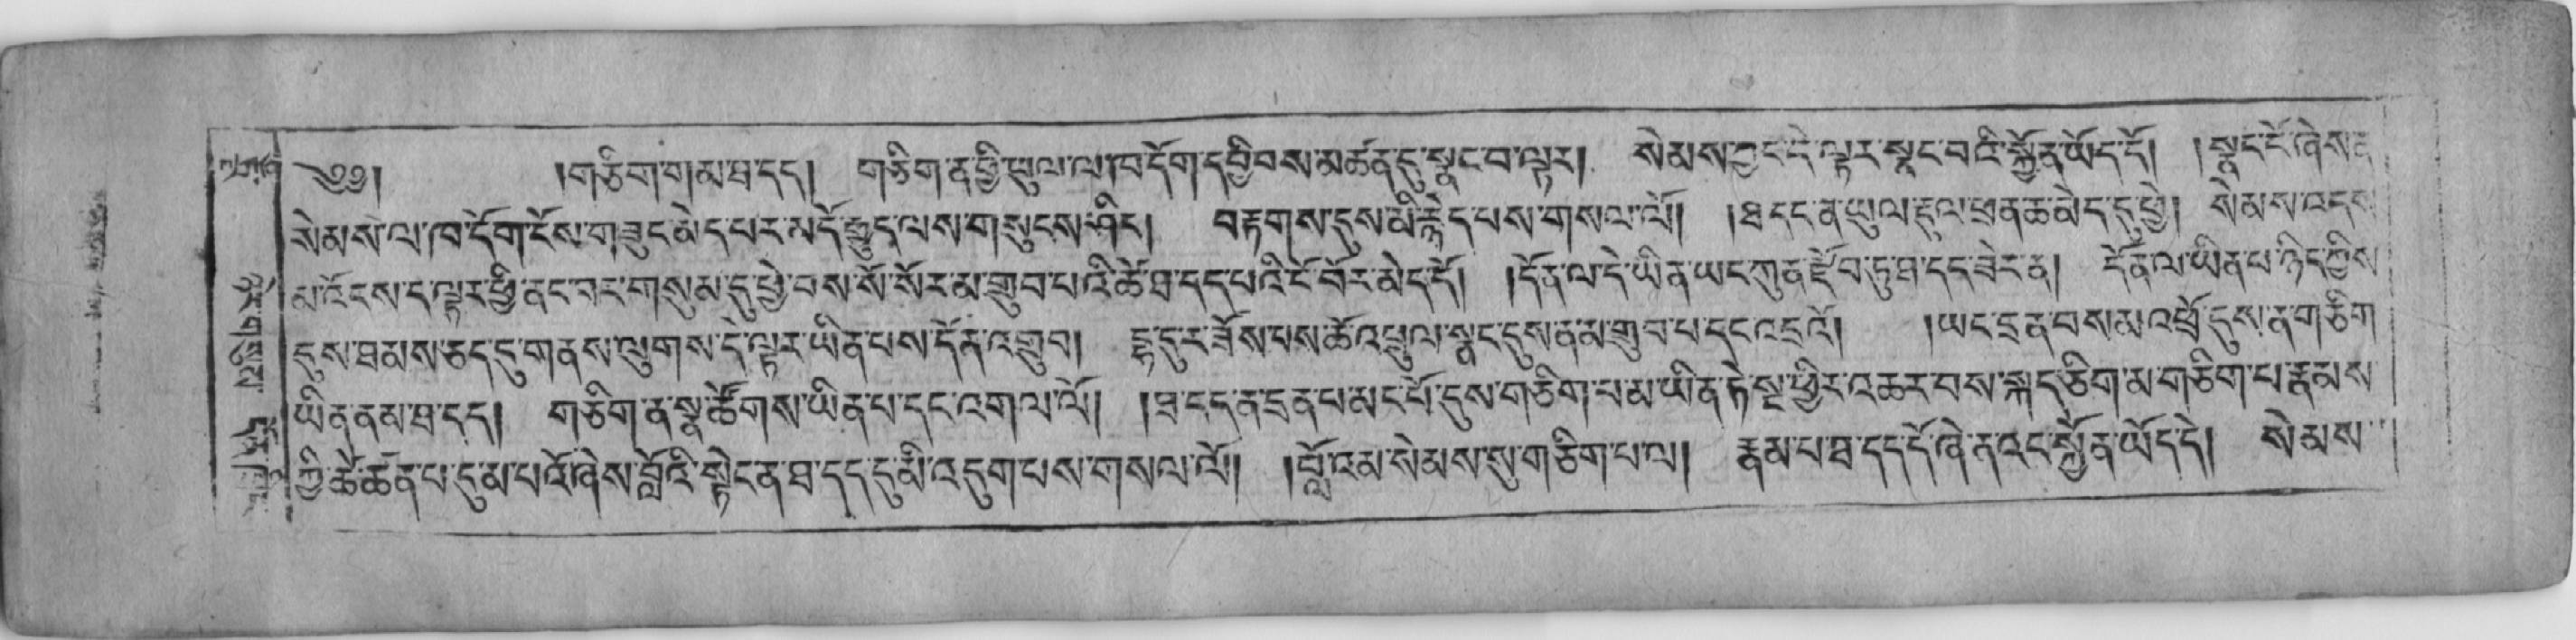 ༄༅། །གཅིག་གམ་ཐ་དད། གཅིག་ན་ཕྱི་ཡུལ་ལ་ཁ་དོག་དབྱིབས་མཚན་དུ་སྣང་བ་ལྟར། སེམས་ཀྱང་དེ་ལྟར་སྣང་བའི་སྐྱོན་ཡོད་དོ། །སྣང་ངོ་ཞེས་ན
སེམས་ལ་ཁ་དོག་ངོས་གཟུང་མེད་པར་མདོ་རྒྱུད་ལས་གསུངས་ཤིང་། བརྟགས་དུས་མི་རྙེད་པས་གསལ་ལོ། །ཐ་དད་ན་ཡུལ་རྡུལ་ཕྲན་ཆ་མེད་དུ་ཕྱེ། སེམས་འདས
མ་འོངས་ད་ལྟར་ཕྱི་ནང་བར་གསུམ་དུ་ཕྱེ་བས་སོ་སོར་མ་གྲུབ་པའི་ཚེ་ཐ་དད་པའི་ངོ་བོར་མེད་དོ། །དོན་ལ་དེ་ཡིན་ཡང་ཀུན་རྫོབ་ཏུ་ཐ་དད་ཟེར་ན། དོན་ལ་ཡིན་པ་ཉིད་ཀྱིས
དུས་ཐམས་ཅད་དུ་གནས་ལུགས་དེ་ལྟར་ཡིན་པས་དོན་འགྲུབ། རྟ་དུར་ཟོས་པས་ཆོ་འཕྲུལ་སྣང་དུས་ན་མ་གྲུབ་པ་དང་འདྲའོ། །ཡང་དྲན་བསམ་འཕྲོ་དུས་ན་གཅིག
ཡིན་ནམ་ཐ་དད། གཅིག་ན་སྣ་ཚོགས་ཡིན་པ་དང་འགལ་ལོ། །ཐ་དད་ན་དྲན་པ་མང་པོ་དུས་གཅིག་པ་མ་ཡིན་ཏེ་སྔ་ཕྱིར་འཆར་བས་སྐད་ཅིག་མ་གཅིག་པ་རྣམས
ཀྱི་ཚེ་ཚོན་པ་དུ་མ་པའོ་ཞེས་བློའི་སྟེང་ན་ཐ་དད་དུ་མི་འདུག་པས་གསལ་ལོ། །བློ་འམ་སེམས་སུ་གཅིག་པ་ལ། རྣམ་པ་ཐ་དད་དོ་ཞེ་ན་འང་སྐྱོན་ཡོད་དེ། སེམས